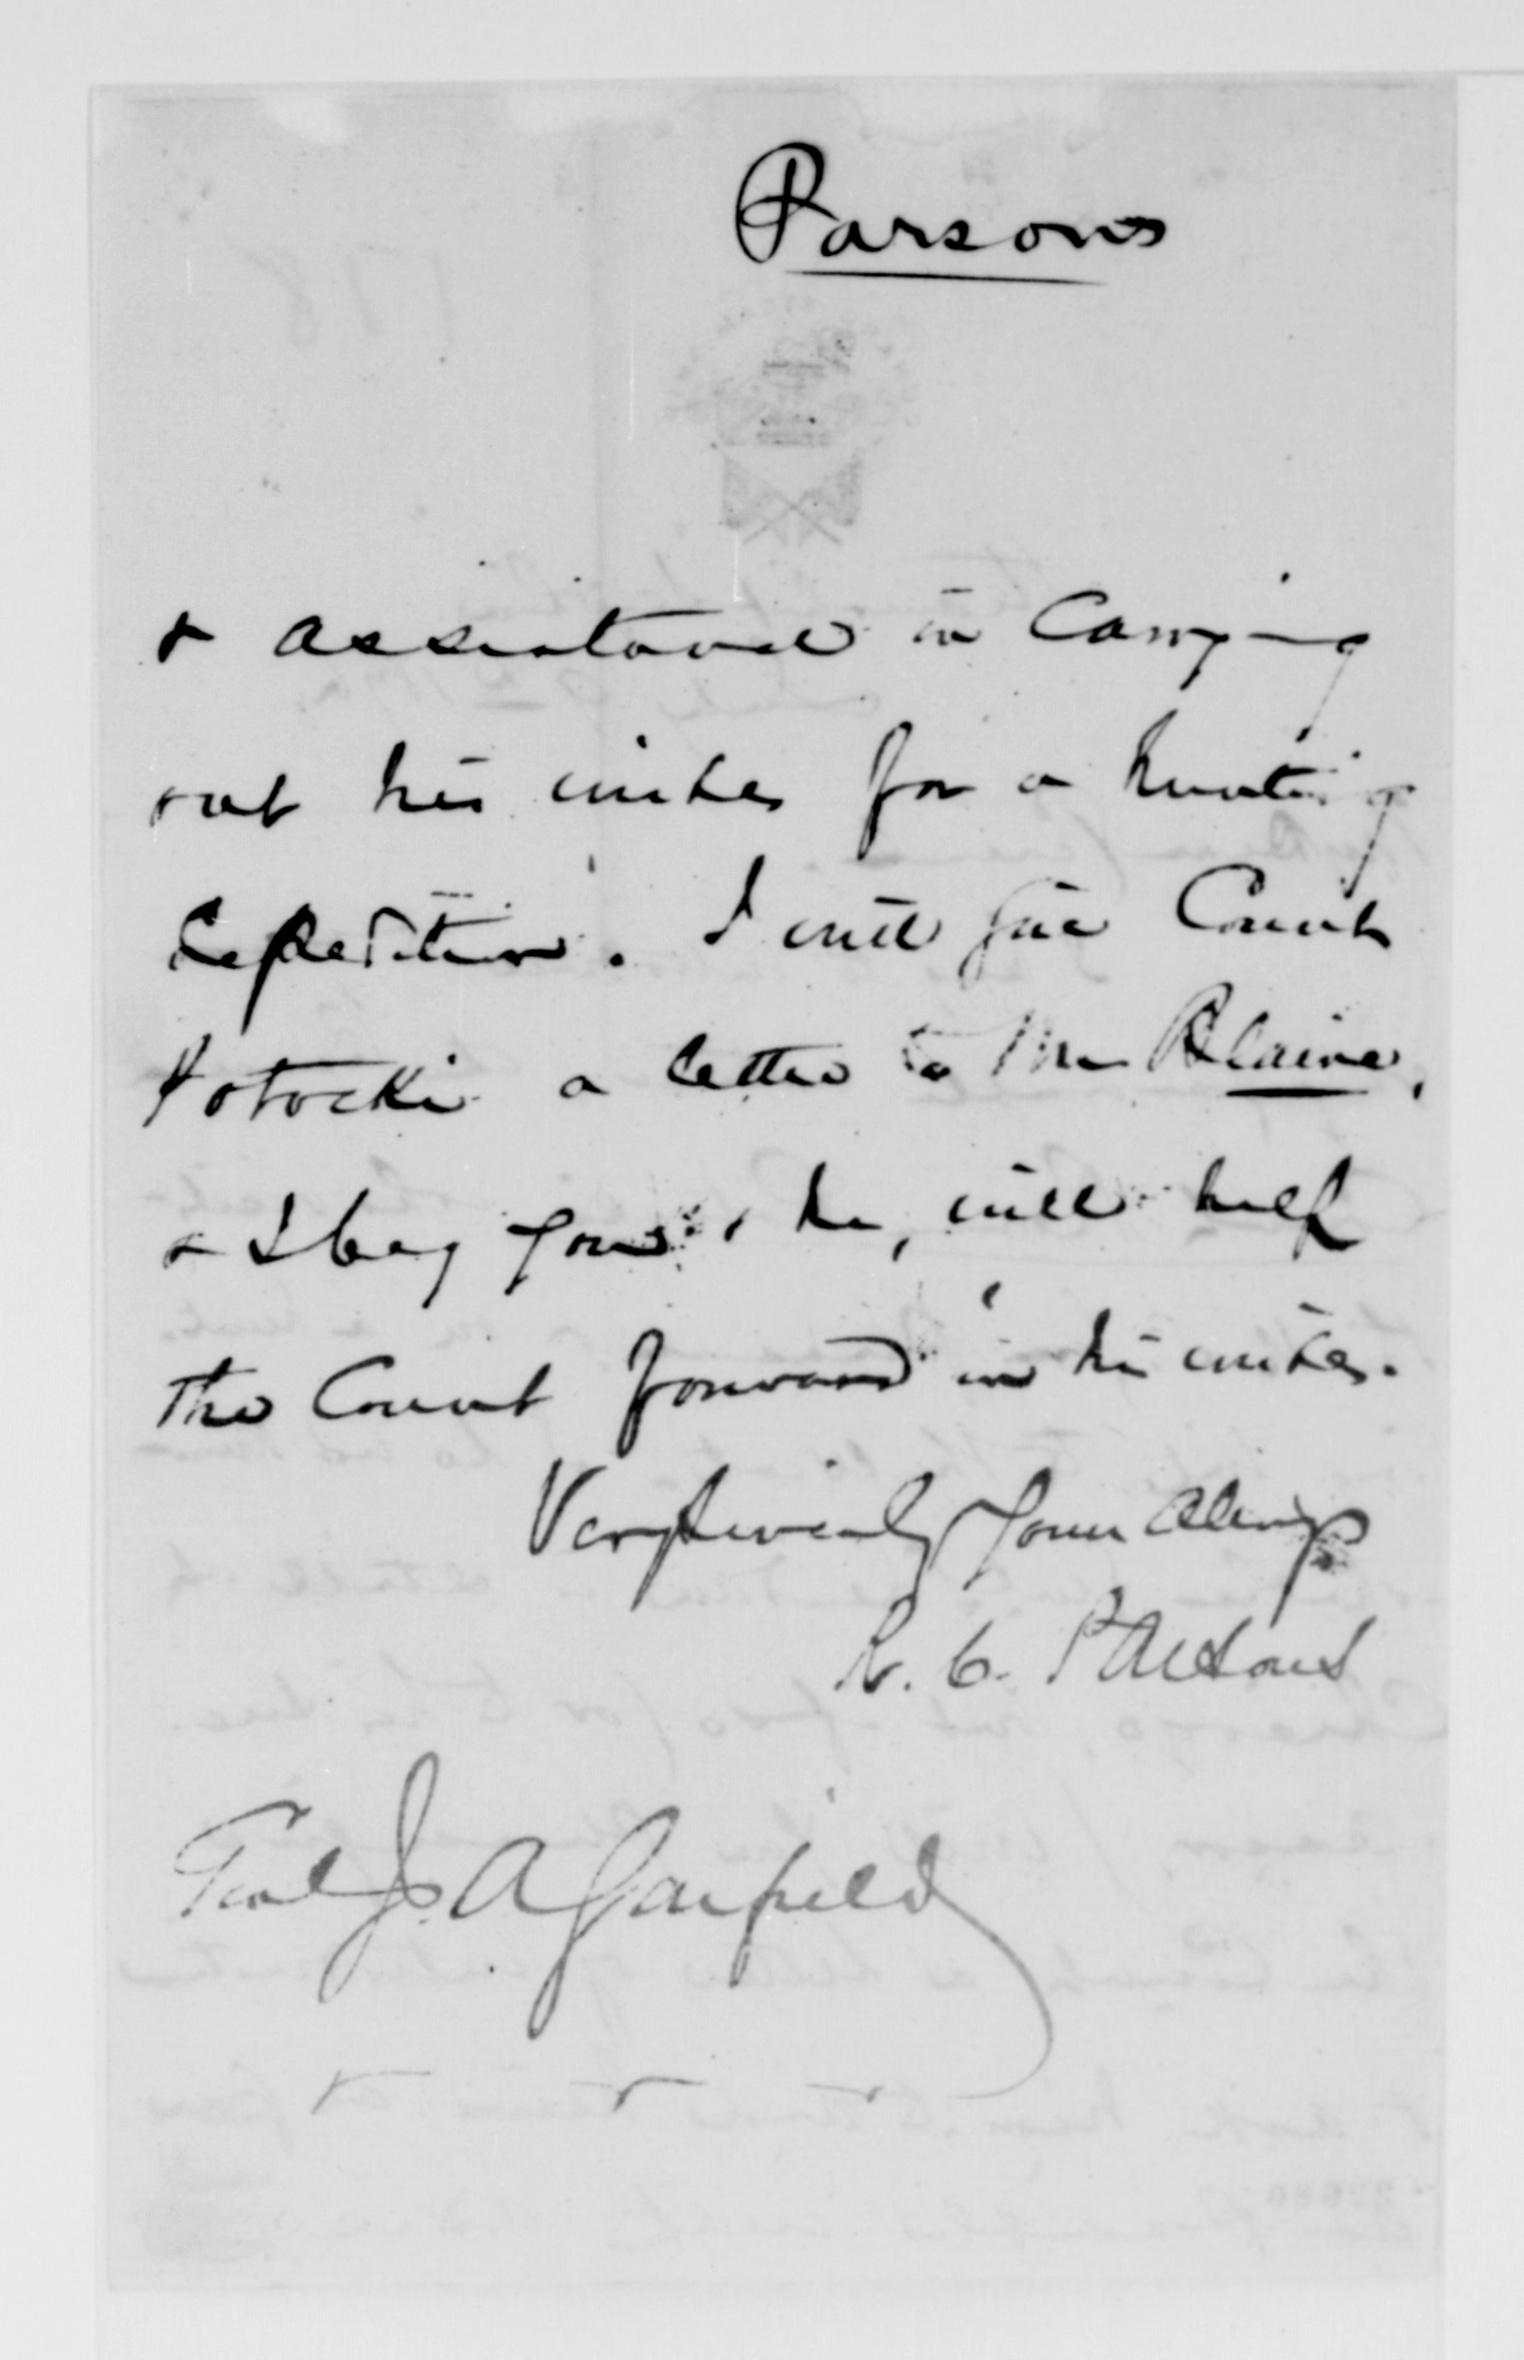 Parsons
& assistance in carrying
out his wishes for a hunting
Expedition. I will give Count
Potocki a letter to Mr Blaine,
& I beg you & he, will help
the Count forward in his wishes.
Very Sincerely Yours Always
R. C. Parsons
Genl J. A Garfield